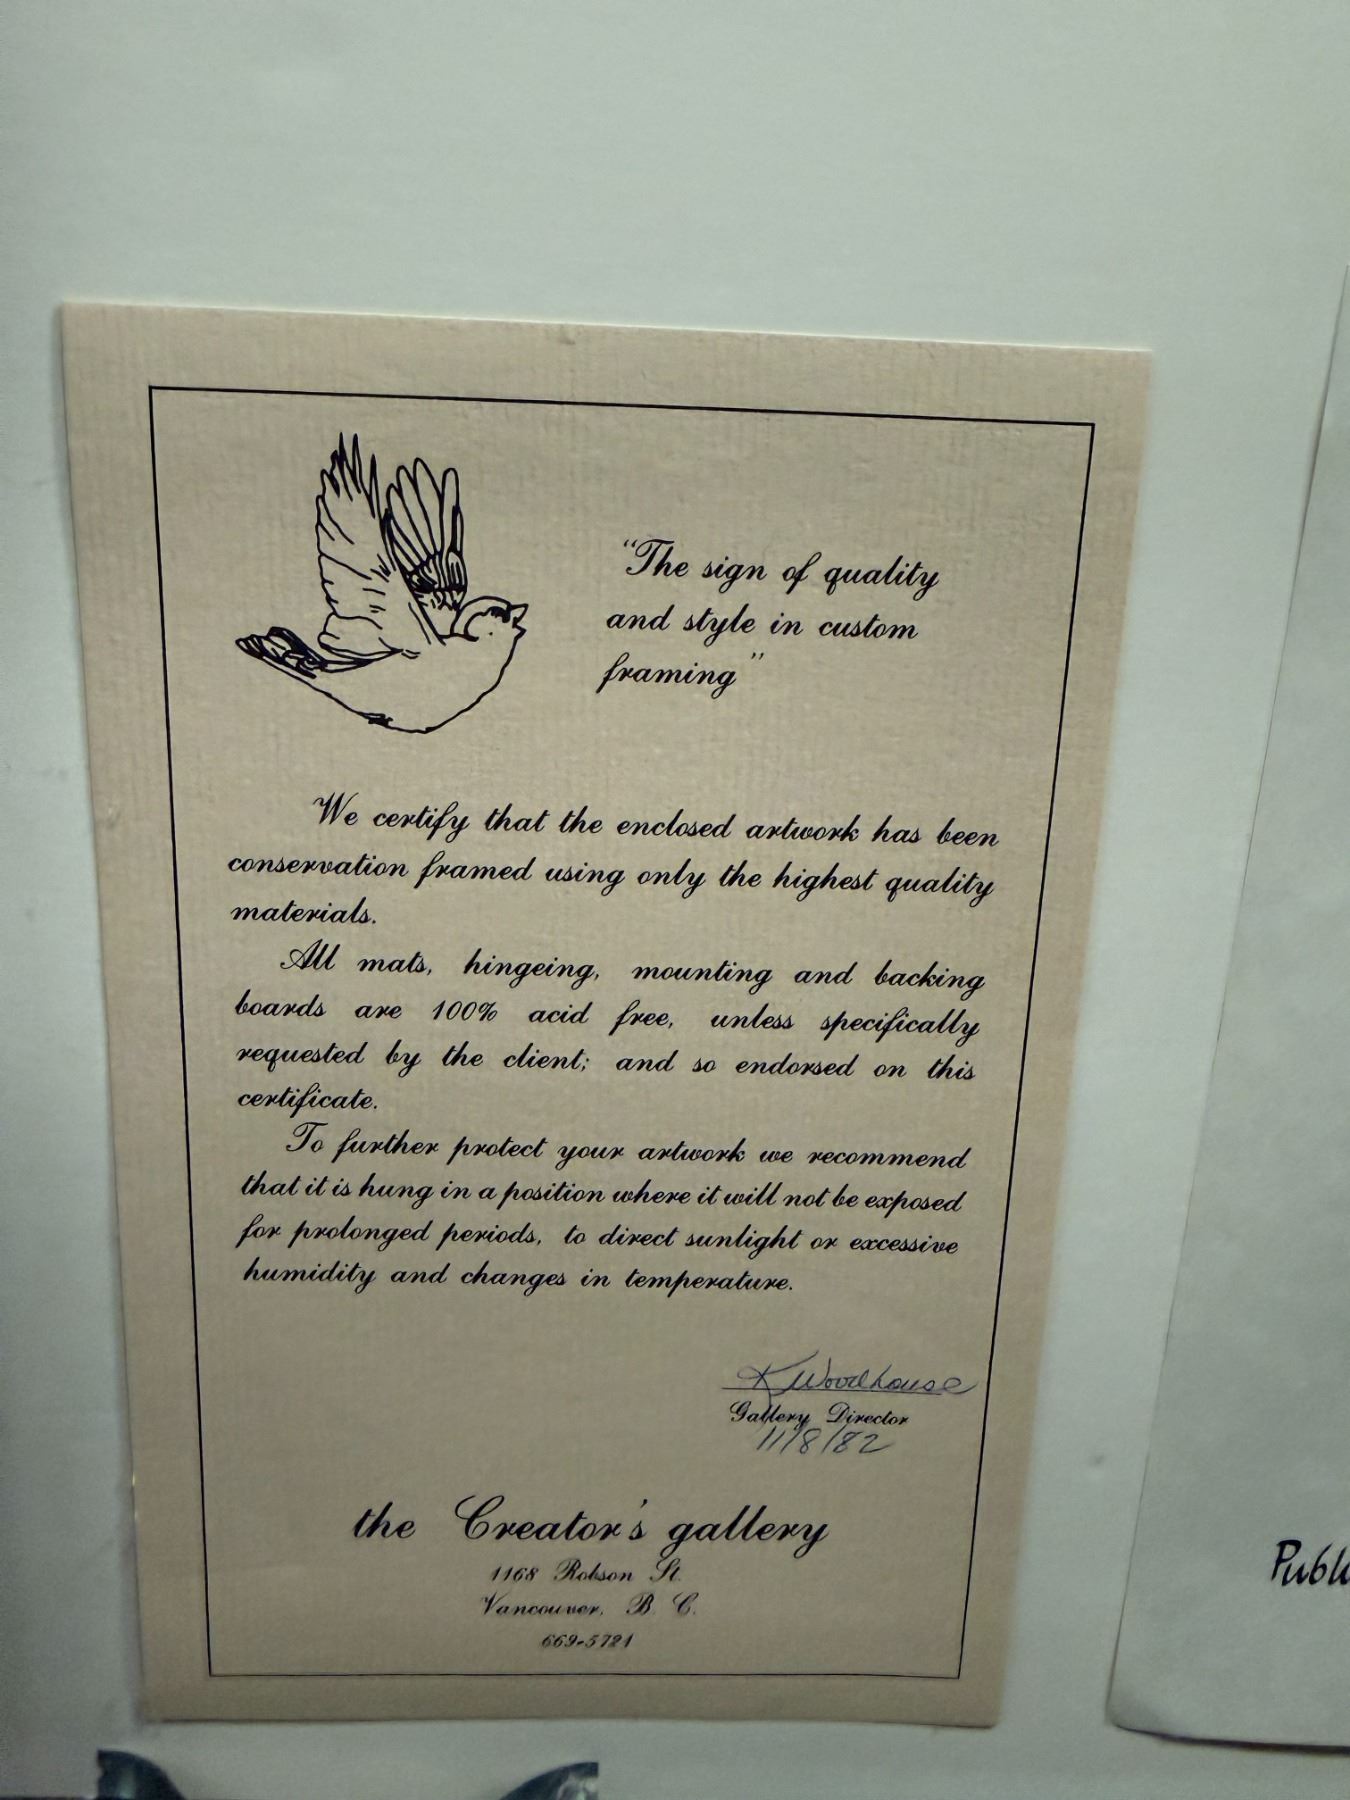 "The sign of quality
and style in custom
framing"
We certify that the enclosed artwork has been
conservation framed using only the highest quality
materials.
All mats, hingeing, mounting and backing
boards are 100% acid free, unless specifically
requested by the client; and so endorsed on this
certificate.
To further protect your artwork we recommend
that it is hung in a position where it will not be exposed
for prolonged periods, to direct sunlight or excessive
humidity and changes in temperature.
K Woodhouse
Gallery Director
11/8/82
the Creator's gallery
1168 Robson St.
Vancouver, B. C.
669-5721